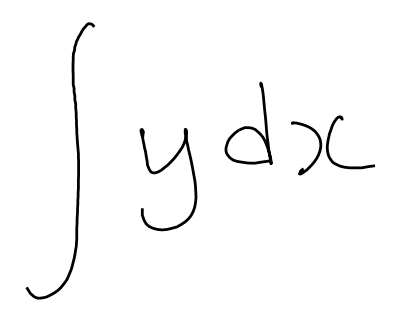 ∫ y dx